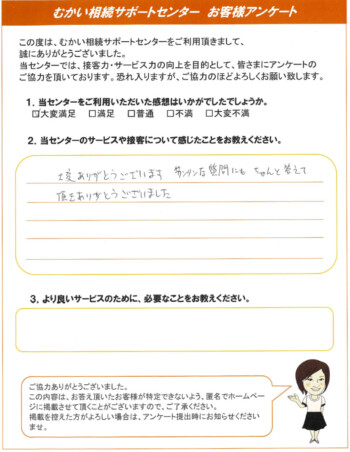 むかい相続サポートセンター お客様アンケート
この度は、むかい相続サポートセンターをご利用頂きまして、
誠にありがとうございました。
当センターでは、接客力・サービス力の向上を目的として、皆さまにアンケートの
ご協力を頂いております。恐れ入りますが、ご協力のほどよろしくお願い致します。
1. 当センターをご利用いただいた感想はいかがでしたでしょうか。
☑大変満足 □満足 □普通 □不満 □大変不満
2. 当センターのサービスや接客について感じたことをお教えください。
大変ありがとうございます カンタンな質問にも ちゃんと答えて
頂きありがとうございました
3. より良いサービスのために、必要なことをお教えください。
ご協力ありがとうございました。
この内容は、お答え頂いたお客様が特定できないよう、匿名でホームペー
ジに掲載させて頂くことがございますので、ご了承ください。
掲載を控えた方がよろしい場合は、アンケート提出時にお知らせください
ませ。